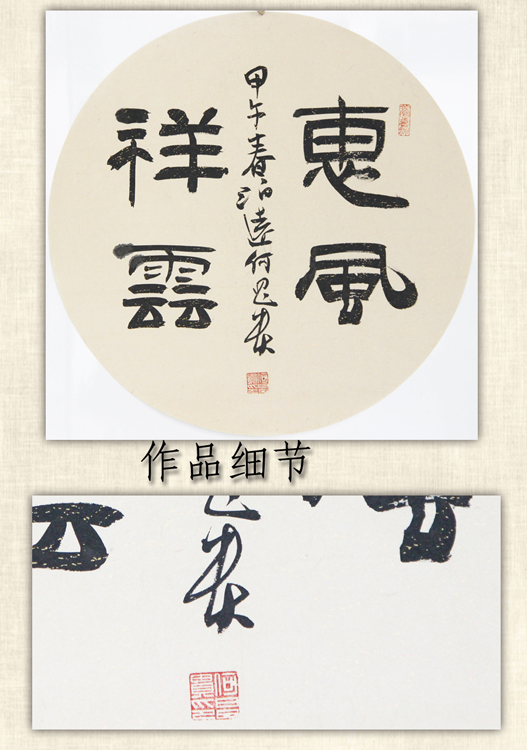 惠風
祥雲
甲午春泊遠何
作品细节